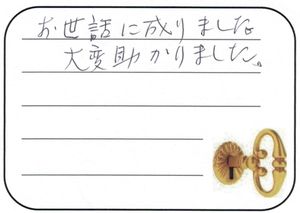 お世話に成りました
大変助かりました。